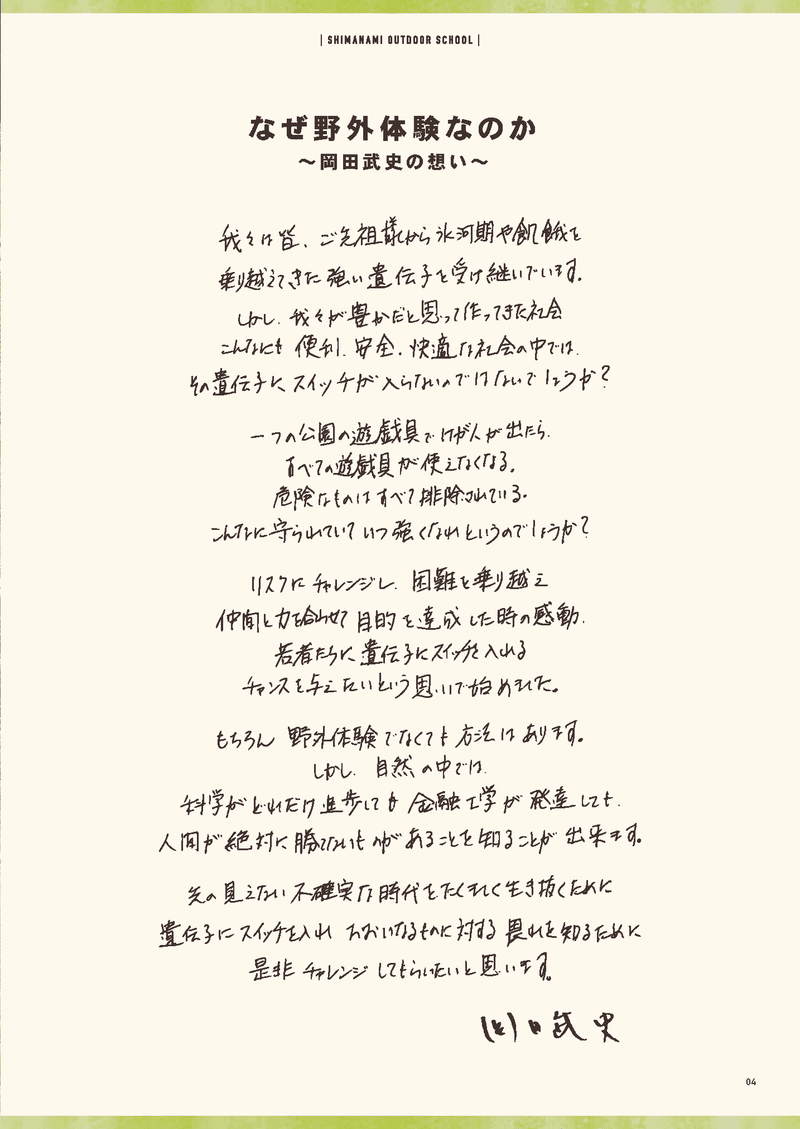 | SHIMANAMI OUTDOOR SCHOOL |
なぜ野外体験なのか
～岡田武史の想い～
我々は皆、ご先祖様から氷河期や飢餓を
乗り越えてきた強い遺伝子を受け継いでいます。
しかし、我々が豊かだと思って作ってきた社会
こんなにも便利、安全、快適な社会の中では、
その遺伝子にスイッチが入らないのではないでしょうか？
一つの公園の遊戯具でけが人が出たら、
すべての遊戯具が使えなくなる。
危険なものはすべて排除されている。
こんなに守られていていつ強くなれというのでしょうか？
リスクにチャレンジし、困難を乗り越え
仲間と力を合わせて目的を達成した時の感動、
若者たちに遺伝子にスイッチを入れる
チャンスを与えたいという思いで始めました。
もちろん野外体験でなくても方法はあります。
しかし、自然の中では、
科学がどれだけ進歩しても金融工学が発達しても、
人間が絶対に勝てないものがあることを知ることが出来ます。
先の見えない不確実な時代をたくましく生き抜くために
遺伝子にスイッチを入れおおいなるものに対する畏れを知るために
是非チャレンジしてもらいたいと思います。
岡田武史
04